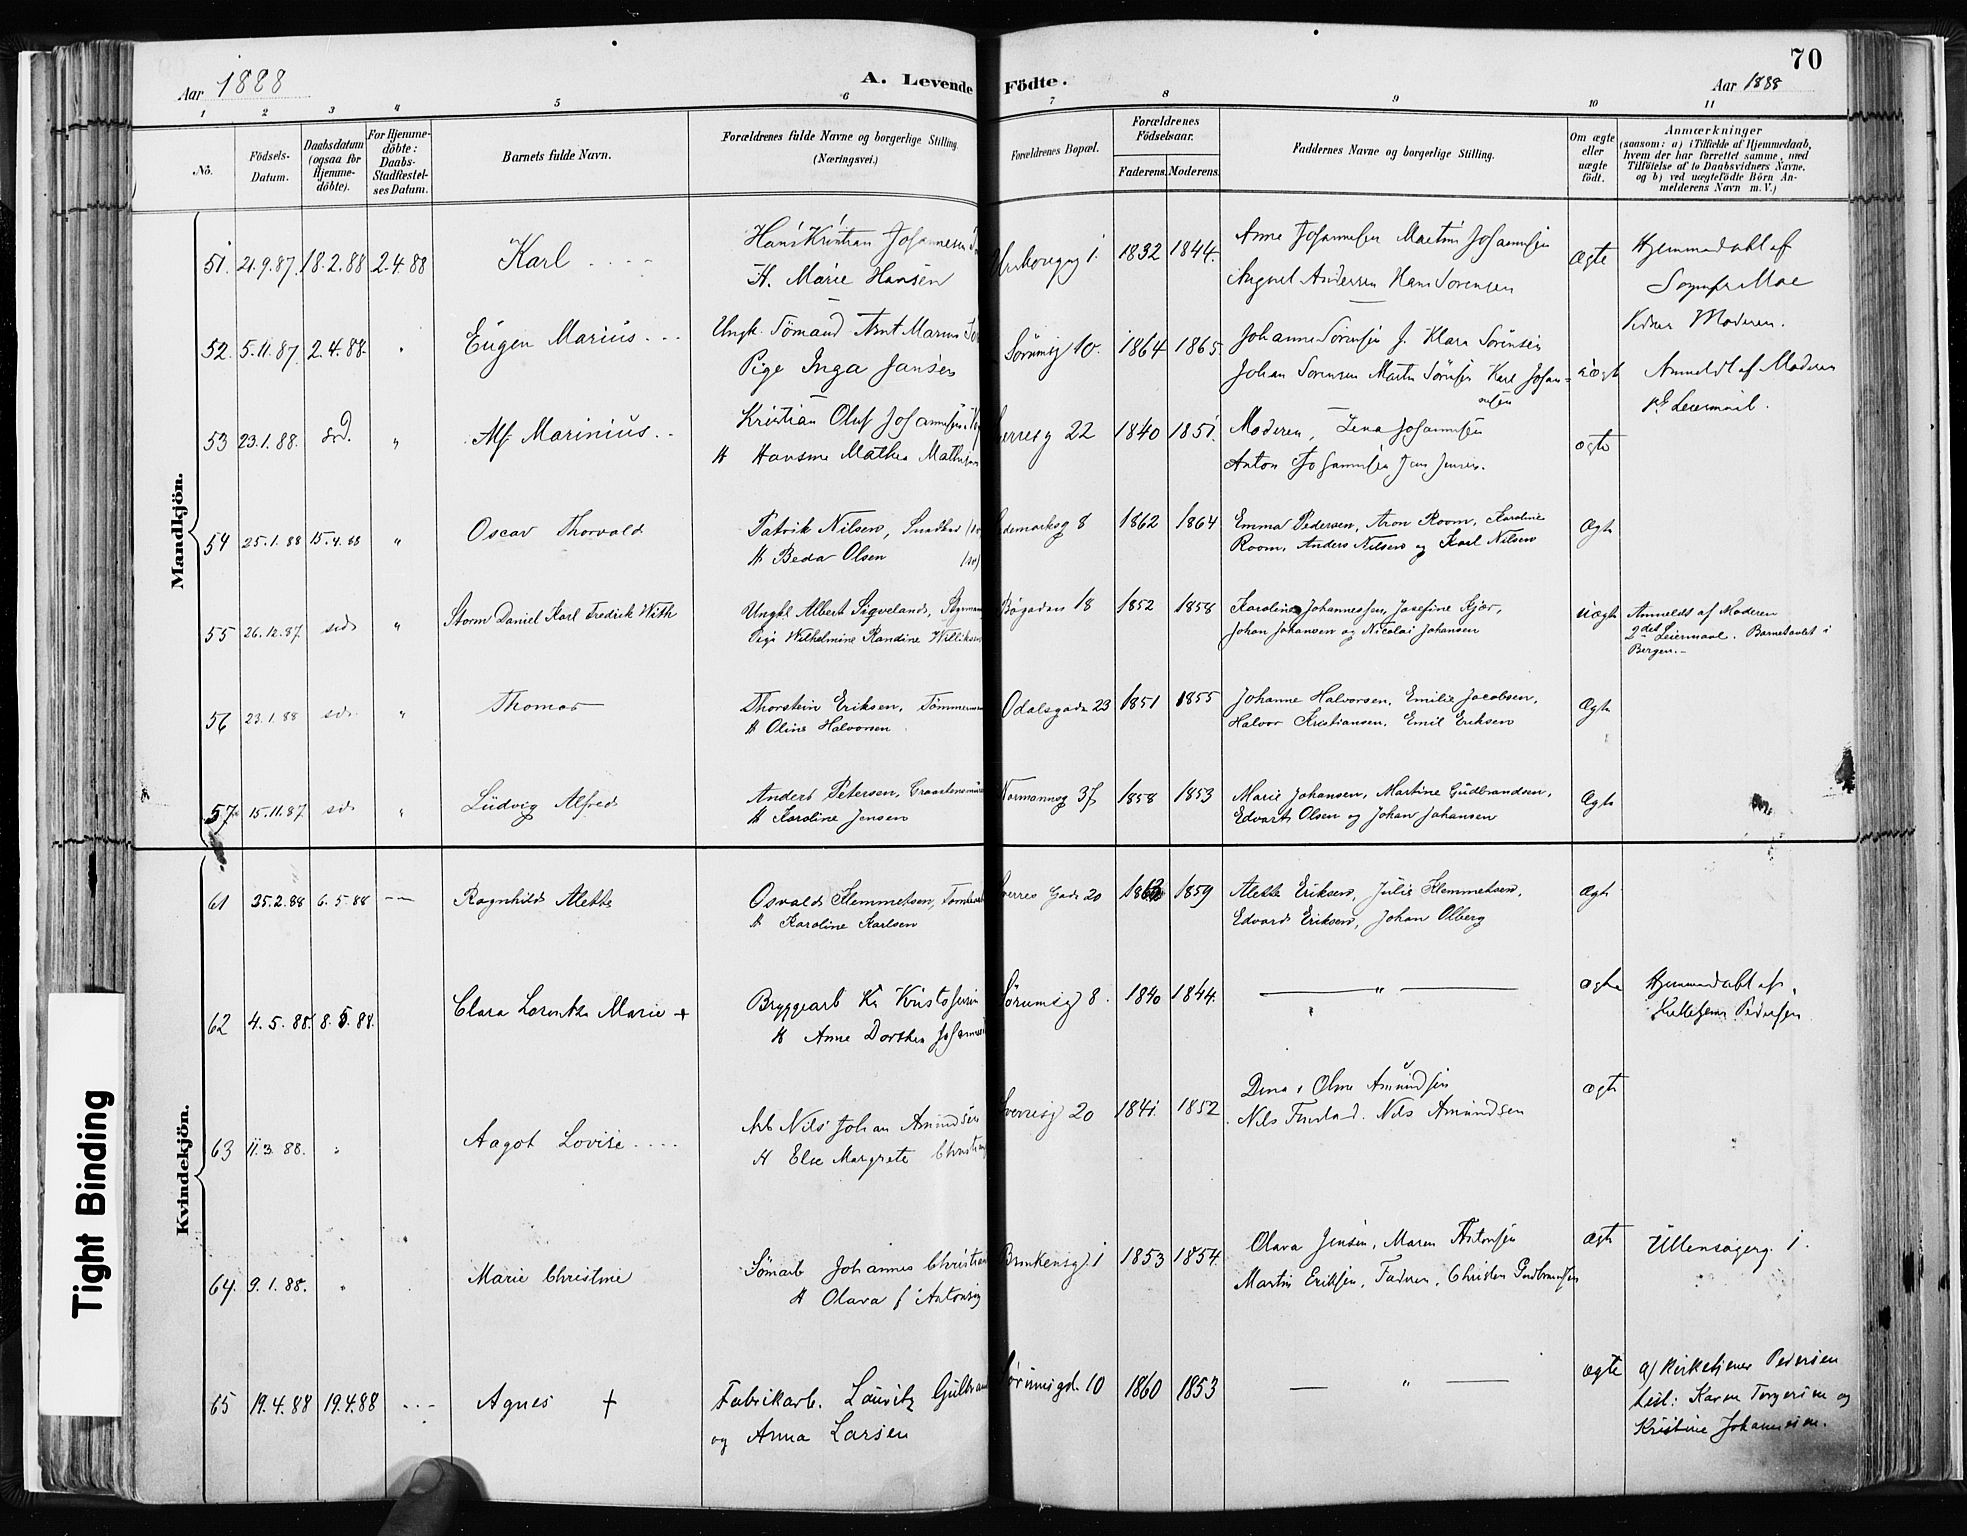 70
Aar 1888
A. Levende Födte.
Aar 1888
1 2 3 4 5 6 7 8 9 10 11
No.
Födsels-
Datum.
Daabsdatum
(ogsaa for
Hjemme-
döbte).
For Hjemme-
döbte:
Daabs-
Stadfæstel-
ses Datum.
Barnets fulde Navn.
Forældrenes fulde Navne og borgerlige Stilling
(Næringsvei.)
Forældrenes Bopæl.
Forældrenes
Födselsaar.
Faderens. Moderens.
Faddernes Navne og borgerlige Stilling.
Om ægte
eller
uægte
födt.
Anmærkninger
(saasom: a) i Tilfælde af Hjemmedaab,
hvem der har forrettet samme, med
Tilföielse af to Daabsvidners Navne,
og b) ved uægtefödte Börn An-
melderens Navn m. V.)
Mandkjön.
51. 21.9.87. 18.2.88 2.4.88 Karl
Hans Kristian Johannesen
H. Marie Hansen
1. 1832 1844.
Anne Johannesen Martin Johannesen
August Andersen Hans Sorensen
Ægte
Hjemmedøbt af
Moe
Vidner Moderen.
52. 5.11.87. 2.4.88. Eugen Marius
Ungk. Sömand Arnt Marius
Pige Inga Jansen
Sørumsg 10. 1864 1865.
Johanne Sørensen J. Klara Sörensen
Johan Sorensen Martin Sörensen Karl Johan-
nesen
uægte
Anmeldt af Moderen
1ste Leiermaal.
53 23.1.88. s.d. " Alf Marinius
Kristian Oluf Johannesen
H Hansine Mathea Mathisen
Sverresg 22 1840 1851.
Moderen, Lena Johannesen
Anton Johannesen Jens Jensen.
ægte
54 25.1.88 15.4.88 " Oscar Thorvald
Patrik Nilsen, Snedker
H Beda Olsen
Hedemarksg 8 1862 1864
Emma Pedersen, Aron Room, Karoline
Room, Anders Nilsen og Karl Nilsen
Ægte
55 26.12.87. s.d. " Storm Daniel Karl Fredrik With
Ungkl Albert Sigveland, Styrmand
Pige Wilhelmine Randine Willikson
Bögaden 18 1852 1858
Karoline Johannessen, Josefine Kjær,
Johan Johansen og Nicolai Johansen
Uægte
Anmeldt af Moderen
2det Leiermaal. Barnet avlet i
Bergen.
56 23.1.88 s.d. " Thomas
Thorstein Eriksen, Tømmermand
H Oline Halvorsen
Odalsgaden 23 1851 1855
Johanne Halvorsen, Emilie Jacobsen,
Halvor Kristiansen, Emil Eriksen
Ægte
57. 15.11.87. s.d. " Ludvig Alfred
Anders Petersen, Graastensmurer
H Karoline Jensen
Normannsg 37 1858 1853
Marie Johansen, Martine Gudbrandsen,
Edvart Olsen og Johan Johansen
Ægte
Kvindekjön.
61 25.2.88 6.5.88 — Ragnhild Alette
Osvald Klemmetsen,
H Karoline Karlsen
Sverres Gade 20 1862 1859
Alette Eriksen, Julie Klemmetsen,
Edvard Eriksen, Johan Olberg
Ægte
62 4.5.88. 8.5.88. Clara Lorentze Marie +
Bryggearb Kr Kristofersen
H Anne Dorthea Johannesen
Sörumsg 8. 1840 1844.
— " —
Ægte
Hjemmedøbt af
Pedersen
63 11.3.88. " Aagot Lovise
Arb Nils Johan Amundsen
H Else Margrete
Sverresg 20 1841. 1852
Dina & Oline Amundsen
Nils Nils Amundsen
Ægte
64. 9.1.88. " Marie Christine
Sömarb Johannes Christian
H Olava f Antonsen
Brinkensg. 1 1853 1854.
Olava Jensen, Maren Antonsen
Martin Eriksen, Faderen, Christen Gudbrandsen
Ægte
Ullensagerg. 1.
65 19.4.88 19.4.88 Agnes +
Fabrikarb. Lauritz Gulbran
og Anna Larsen
Sörumsgd. 10 1860 1853
— " —
Ægte
a/ Kirketjener Pedersen
test: Karen Torgersen og
Kristine Johannesen.
Tight Binding